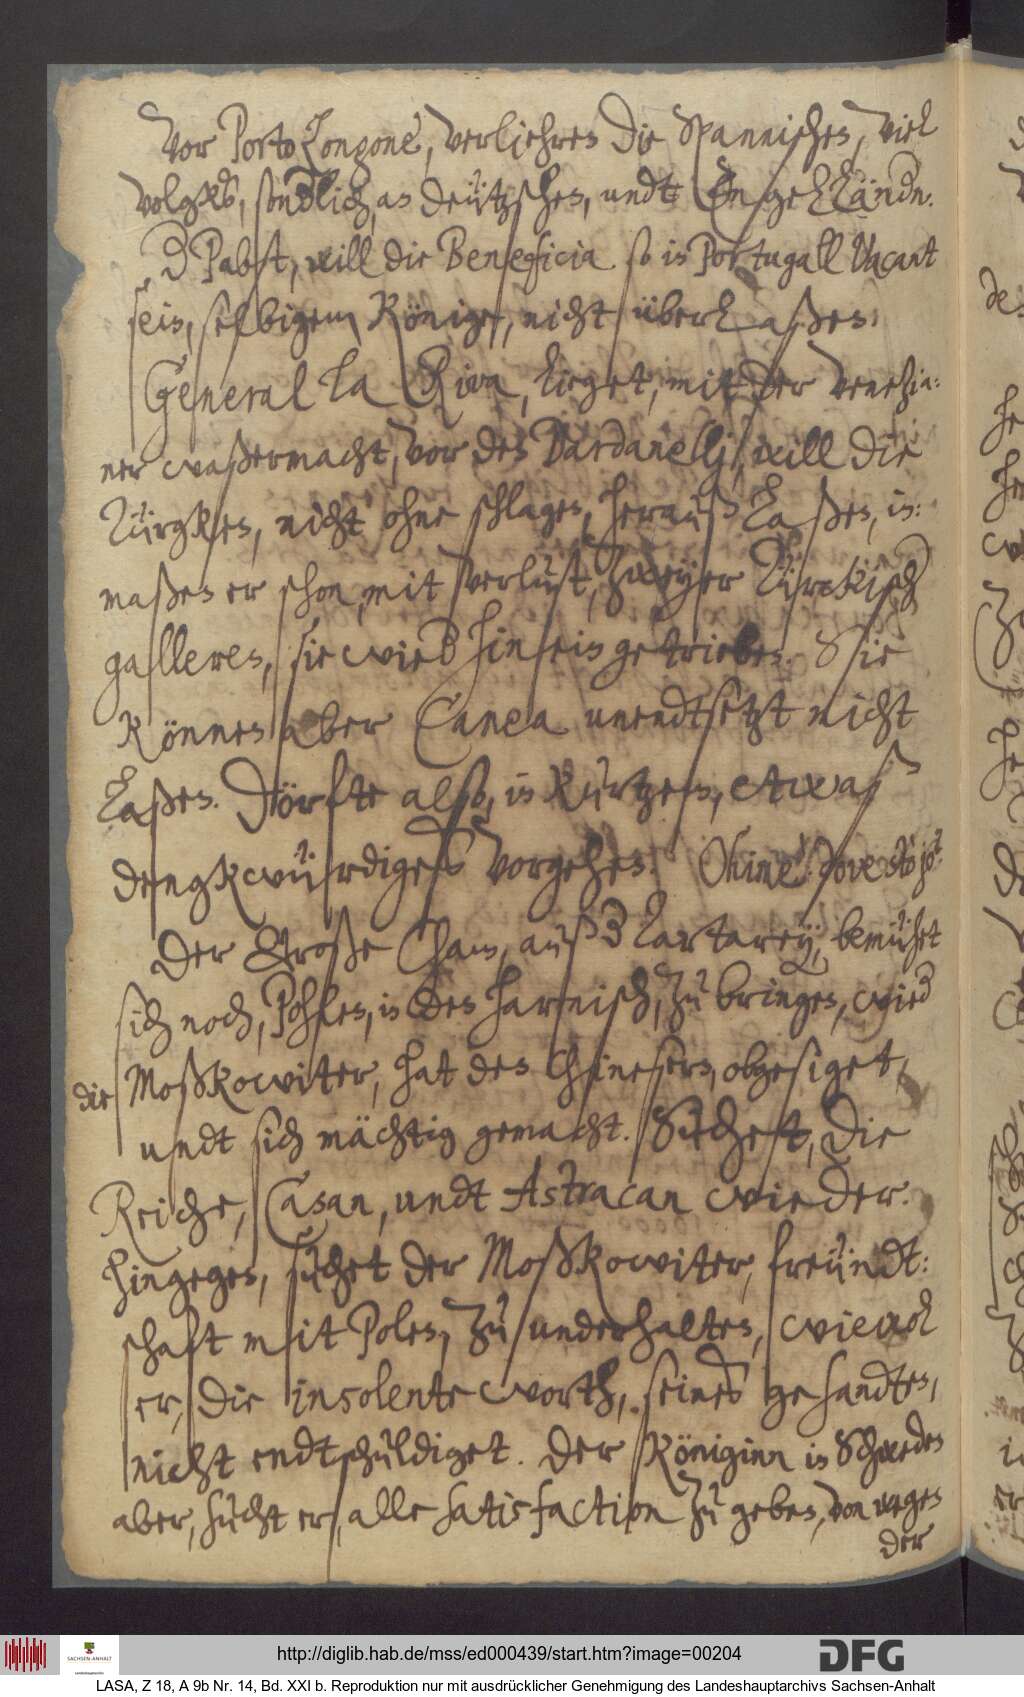 Vor Porto Longone, verliehren die Spannischen, viel
volgks, sonderlich, an deützschen, undt Engelländern.
Der Pabst, will die Beneficia so in Portugall Vacant
sein, selbigem Könige, nicht überlaßen.
General La Riva, lieget, mit der Venezia:
ner waßermacht, vor den Dardanellj, will die
Türgken, nicht ohne schlagen, herauß laßen, in:
maßen er schon, mit verlust, zweyer Türckisch
galleren, sie wied hinein getrieben. Sie
können aber Canea unendtsetzt nicht
laßen. Dörfte also, in kurtzem, etwaß
dengkwürdiges vorgehen. Ohime! dove sto jo?
Der Große Cham, auß der Tartarey, bemühet
sich noch, Pohlen, in den harnisch, zu bringen, wied
die Moßkowiter, hat den Chinesern, obgesieget,
undt sich mächtig gemacht. Suchet, die
Reiche, Casan, undt Astracan wieder.
Hingegen, suchet der Moßkowiter, freündt:
schaft mit Polen, zu underhalten, wiewol
er, die insolente worth, seines gesandten,
nicht endtschuldiget. Der Königinn in Schweden
aber, sucht er, alle satisfaction zu geben, von wegen
der
http://diglib.hab.de/mss/ed000439/start.htm?image=00204
SACHSEN-ANHALT
DFG
LASA, Z 18, A 9b Nr. 14, Bd. XXI b. Reproduktion nur mit ausdrücklicher Genehmigung des Landeshauptarchivs Sachsen-Anhalt